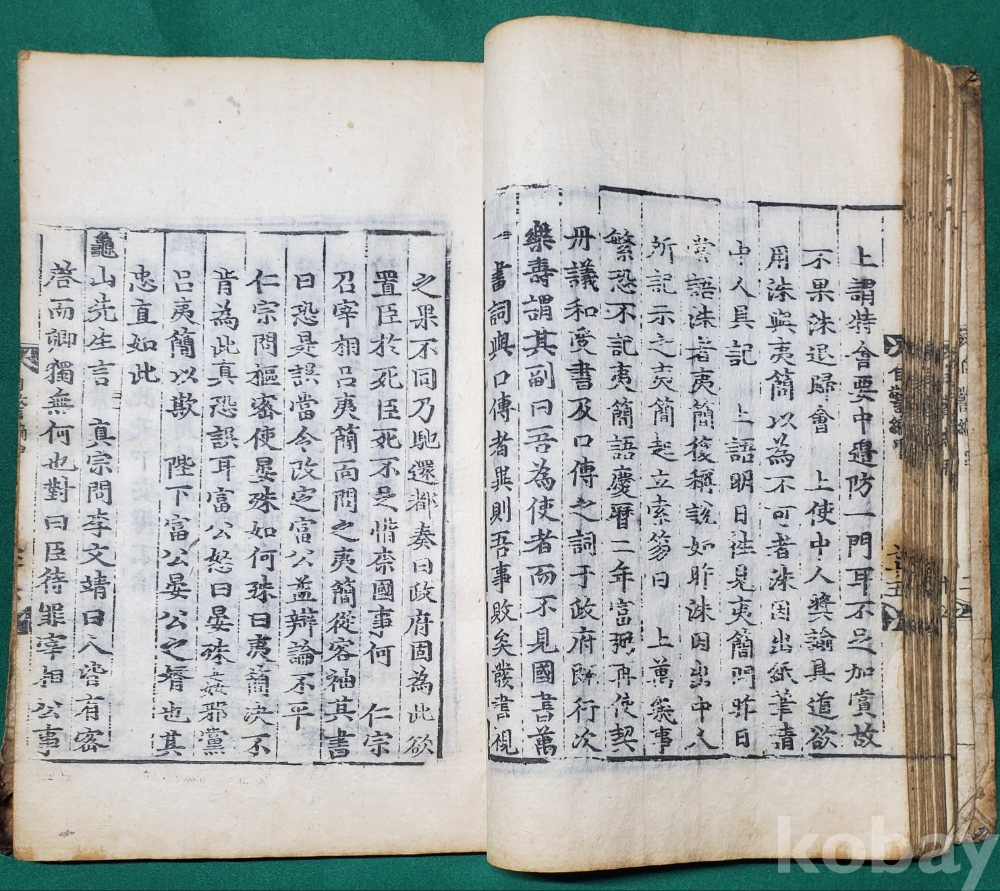 上謂特會要中邊防一門耳不足加賞故
不果洙退歸會 上使中人獎諭具道欲
用洙與夷簡以為不可者洙因出紙筆請
中人具記 上語明日往見夷簡問昨日
嘗語洙者夷簡復稱說如昨洙因出中人
所記示之夷簡起立索笏曰 上萬幾事
繁恐不記夷簡語慶曆二年富弼再使契
丹議和受書及口傳之詞于政府旣行次
樂壽謂其副曰吾為使者而不見國書萬
一書詞與口傳者異則吾事敗矣發書視
之果不同乃馳還都奏曰政府固為此欲
置臣於死臣死不足惜柰國事何 仁宗
召宰相呂夷簡面問之夷簡從容袖其書
曰恐是誤當令改定富公益辯論不平
仁宗問樞密使晏殊如何殊曰夷簡決不
肯為此真恐誤耳富公怒曰晏殊姦邪黨
呂夷簡以欺 陛下富公晏公之婿也其
忠直如此
龜山先生言 真宗問李文靖曰人皆有密
啓而卿獨無何也對曰臣待罪宰相公事
自警編
kobay